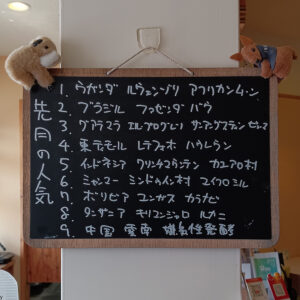 先月の人気
1. ウガンダ ルウェンゾリ アフリカンムーン
2. ブラジル ファゼンダ バウ
3. グアテマラ エルプログレソ サンアグスティン
4. 東ティモール レテフォホ ハウレラン
5. インドネシア クリンチマウンテン カユアロ村
6. ミャンマー ミンドゥイン村 ユイフロミル
7. ボリビア ユンガス カラナビ
8. タンザニア キリマンジャロ ルカニ
9. 中国 雲南 嫌気性発酵